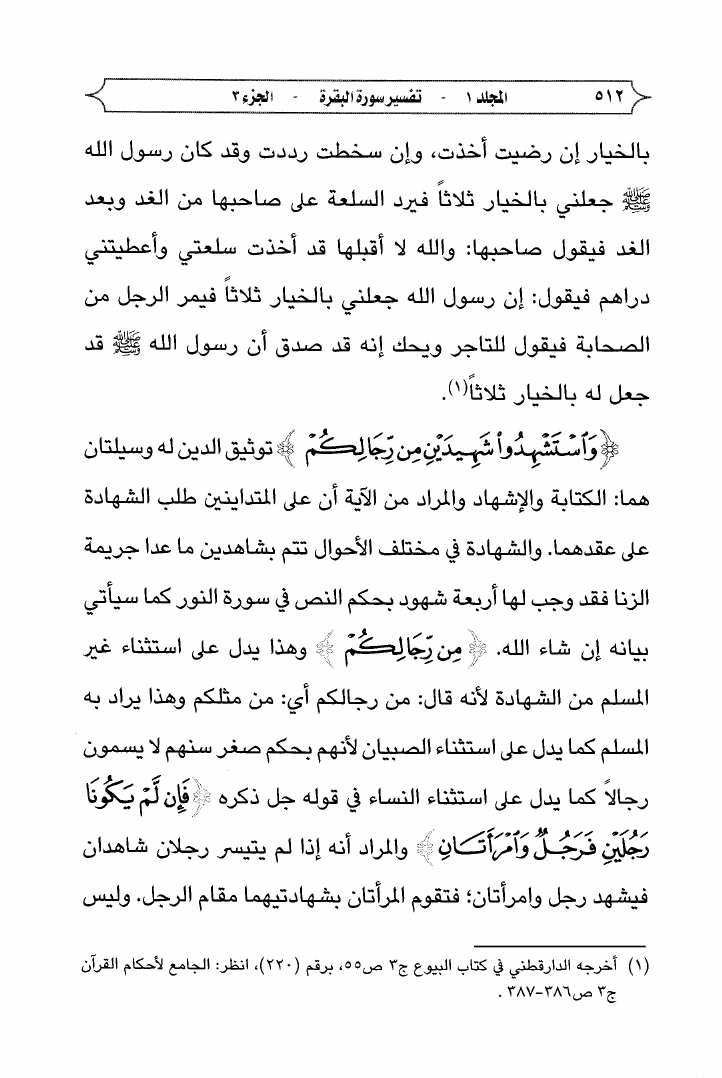 ٥١٢ المجلد ١ - تفسير سورة البقرة - الجزء ٣
بالخيار إن رضيت أخذت، وإن سخطت رددت وقد كان رسول الله
ﷺ جعلني بالخيار ثلاثاً فيرد السلعة على صاحبها من الغد وبعد
الغد فيقول صاحبها: والله لا أقبلها قد أخذت سلعتي وأعطيتني
دراهم فيقول: إن رسول الله جعلني بالخيار ثلاثاً فيمر الرجل من
الصحابة فيقول للتاجر ويحك إنه قد صدق أن رسول الله ﷺ قد
جعل له بالخيار ثلاثاً(١).
﴿وَٱسْتَشْهِدُوا۟ شَهِيدَيْنِ مِن رِّجَالِكُمْ﴾ توثيق الدين له وسيلتان
هما: الكتابة والإشهاد والمراد من الآية أن على المتداينين طلب الشهادة
على عقدهما. والشهادة في مختلف الأحوال تتم بشاهدين ما عدا جريمة
الزنا فقد وجب لها أربعة شهود بحكم النص في سورة النور كما سيأتي
بيانه إن شاء الله. ﴿مِن رِّجَالِكُمْ﴾ وهذا يدل على استثناء غير
المسلم من الشهادة لأنه قال: من رجالكم أي: من مثلكم وهذا يراد به
المسلم كما يدل على استثناء الصبيان لأنهم بحكم صغر سنهم لا يسمون
رجالاً كما يدل على استثناء النساء في قوله جل ذكره ﴿فَإِن لَّمْ يَكُونَا
رَجُلَيْنِ فَرَجُلٌ وَٱمْرَأَتَانِ﴾ والمراد أنه إذا لم يتيسر رجلان شاهدان
فيشهد رجل وامرأتان؛ فتقوم المرأتان بشهادتيهما مقام الرجل. وليس
(١) أخرجه الدارقطني في كتاب البيوع ج٣ ص٥٥، برقم (٢٢٠)، انظر: الجامع لأحكام القرآن
ج٣ ص٣٨٦-٣٨٧ .